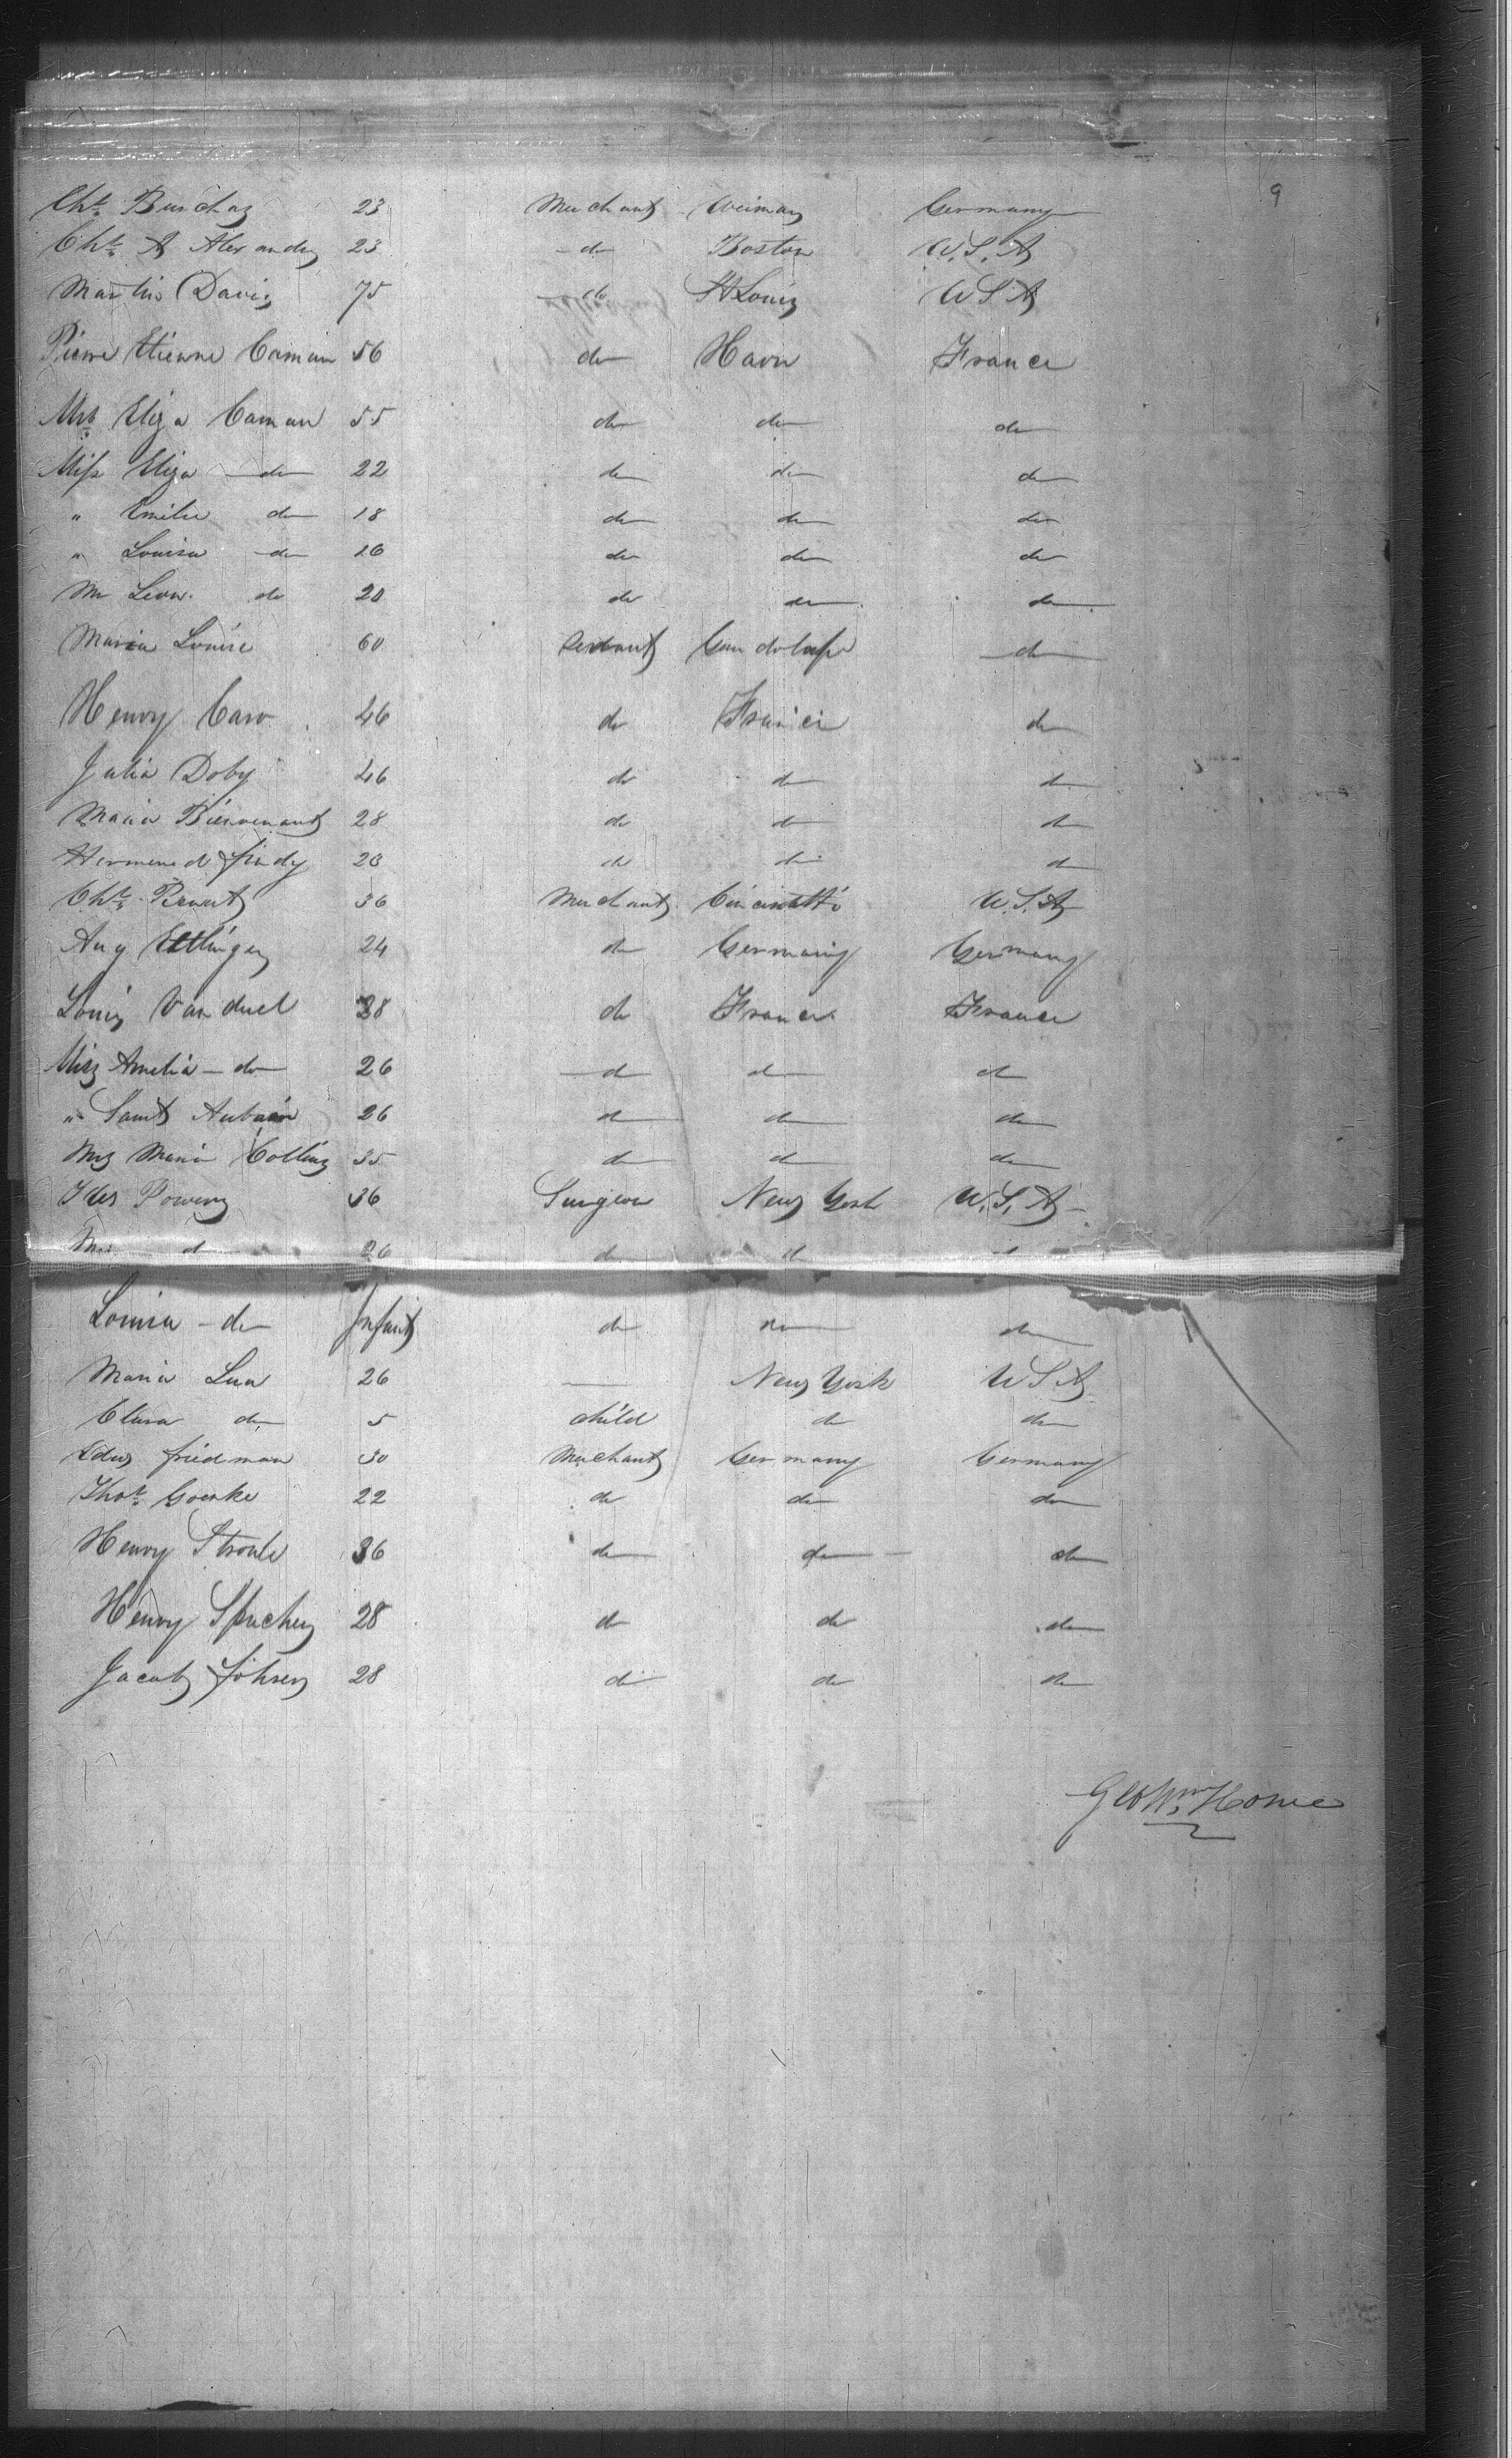 9
Chs 23 Merchant Weimar Germany
Chs A Alexander 23 do Boston U.S.A
Martin Davis 75 do St Louis U S A
Pierre Etienne 56 do Havre France
Mrs Eliza Caman 55 do do do
Miss Eliza do 22 do do do
" Emilie do 18 do do do
" Louisa do 16 do do do
Mr Leon do 20 do do do
Maria Louise 60 Servant do
Henry Caro 46 do France do
Julia Doby 46 do do do
Maria 28 do do do
do do do
Chs 36 Merchant Cincinatti U.S.A
Aug Ettlinger 24 do Germany Germany
Louis Vanduel 38 do France France
Miss Amelia do 26 do do do
" Saint 26 do do do
Mrs Maria Collins 35 do do do
Powers 36 Surgeon New York U.S.A
Mrs do 26 do d d
Louisa do Infant do do do
Maria 26 — New York U S A
Clara do 5 child do do
Edw friedman 30 Merchant Germany Germany
Thos Goerke 22 do do do
Henry 36 do do do
Henry 28 do do do
Jacob 28 do do do
Geo Wm Howe